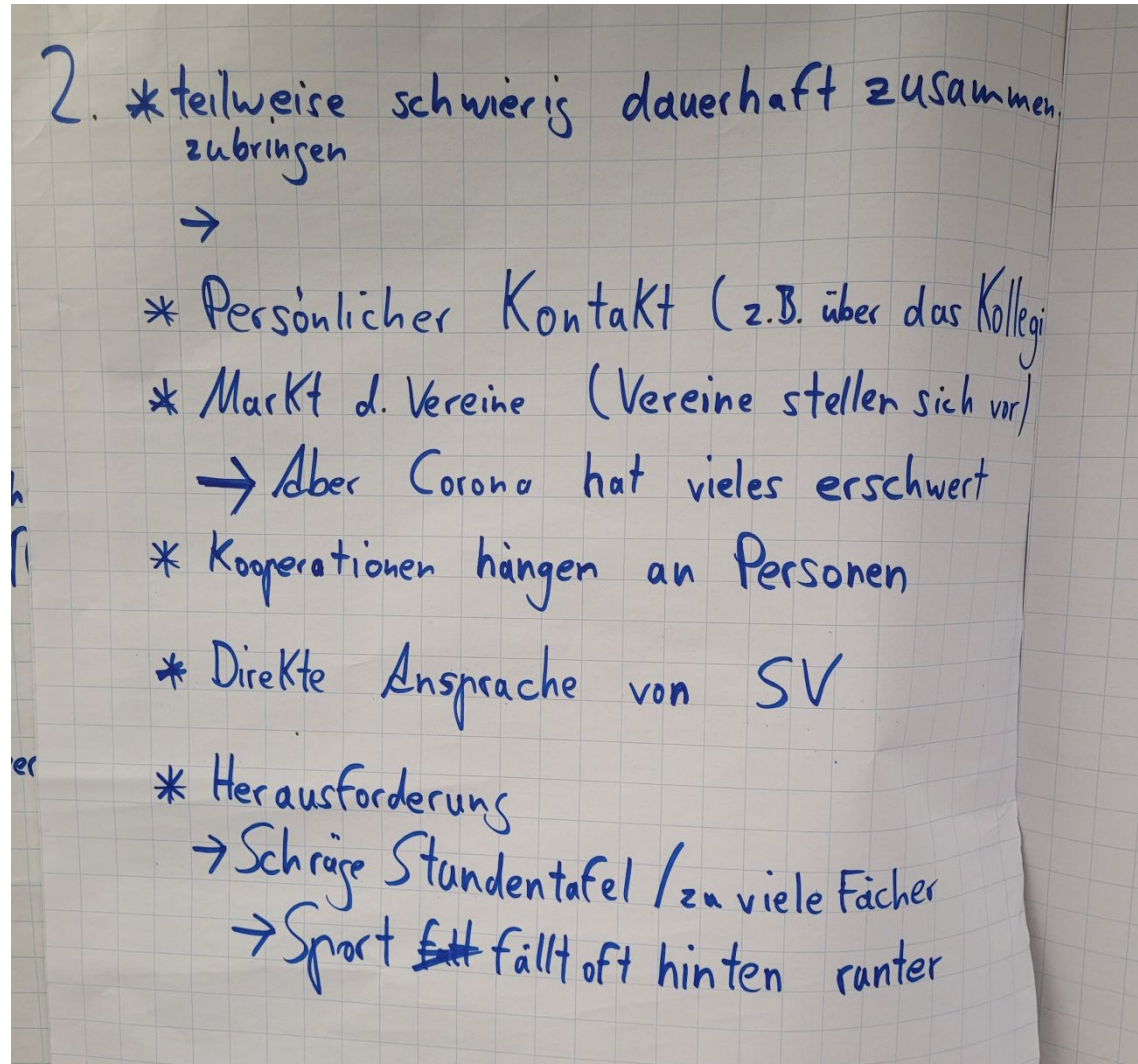 2. * teilweise schwierig dauerhaft zusammen.
zubringen
→
* Persönlicher Kontakt (z.B. über das Kollegi
* Markt d. Vereine (Vereine stellen sich vor)
→ Aber Corona hat vieles erschwert
* Kooperationen hängen an Personen
* Direkte Ansprache von SV
* Herausforderung
→ Schräge Stundentafel / zu viele Fächer
→ Sport fällt oft hinten runter
er